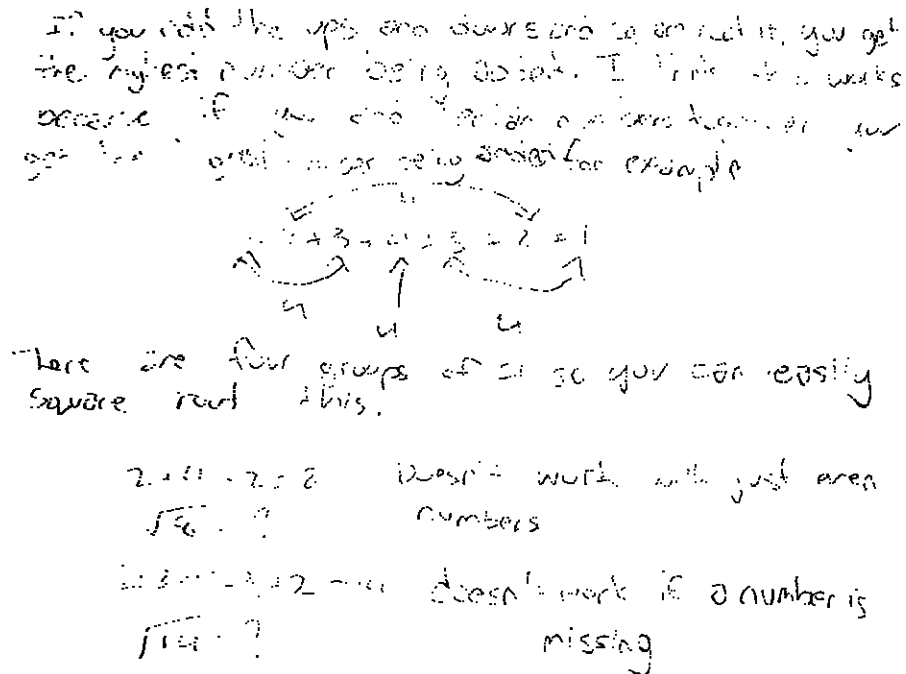 If you add the ups and downs and square root it, you get
the highest number being added. I think this works
because if you add certain numbers together you
get the highest number being added for example
1+2+3+4+3+2+1
4
4 4 4
There are four groups of 4 so you can easily
square root this.
2+4+2=8 Doesn't work with just even
√8 = ? numbers
doesn't work if a number is
√14 = ? missing